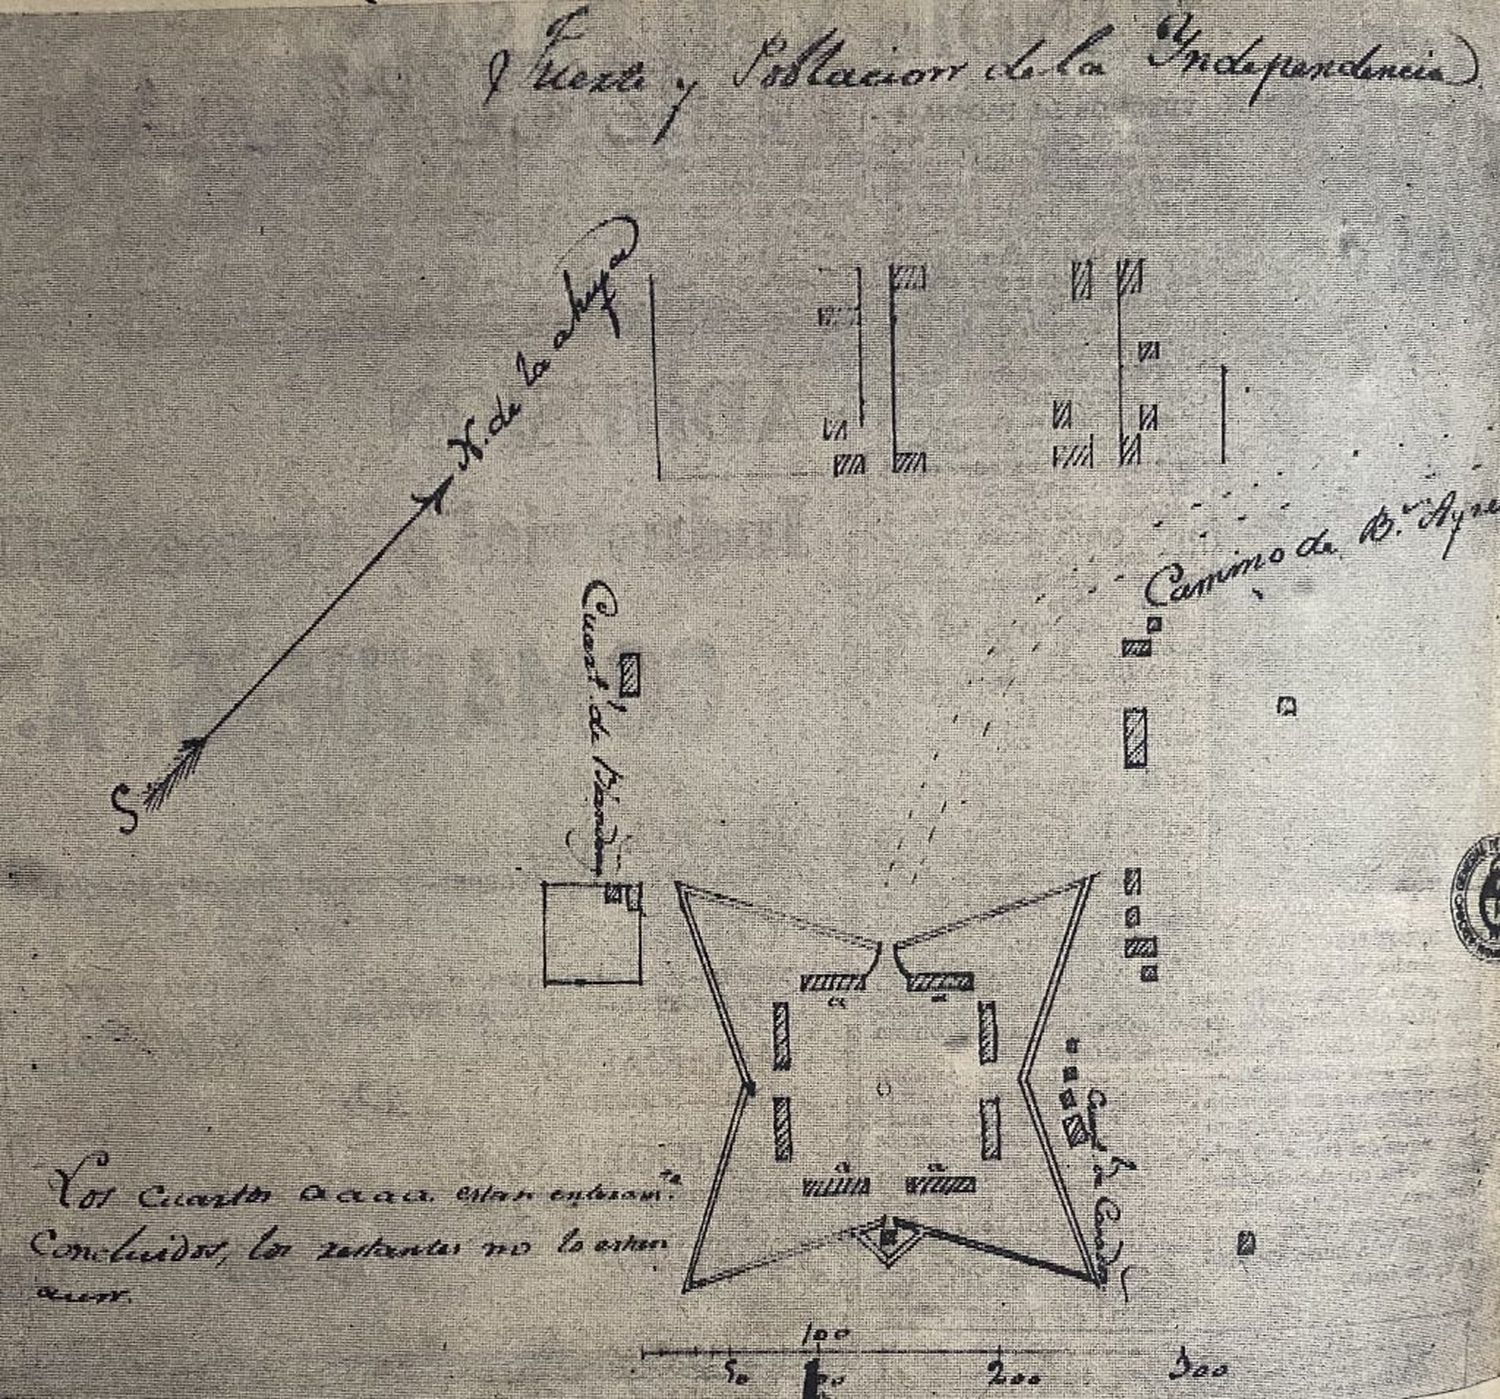 Fuerte y Poblacion de la Yndependencia
N. de la abuja
S
Camino de B.s Ayre
Cuart.l de
a
a
a
a
Los Cuartos a a a a. estan enteram.te
Concluidos, los restantes no lo estan
aun.
100
50
200
300